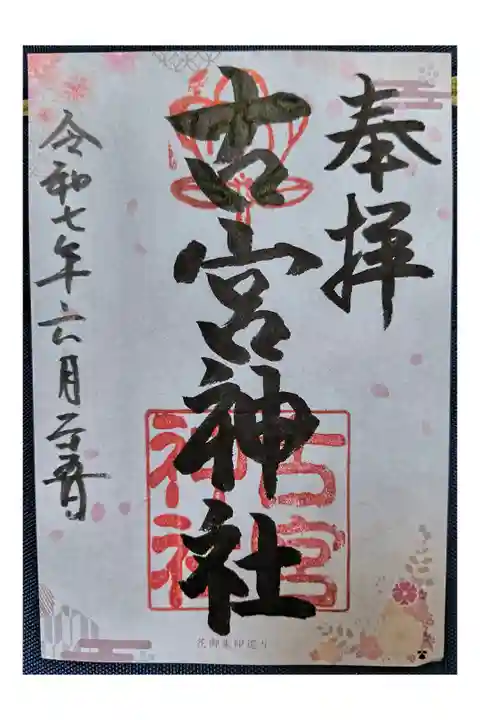 奉拝
古宮神社
古宮神社
令和七年六月二十五日
花御朱印巡り